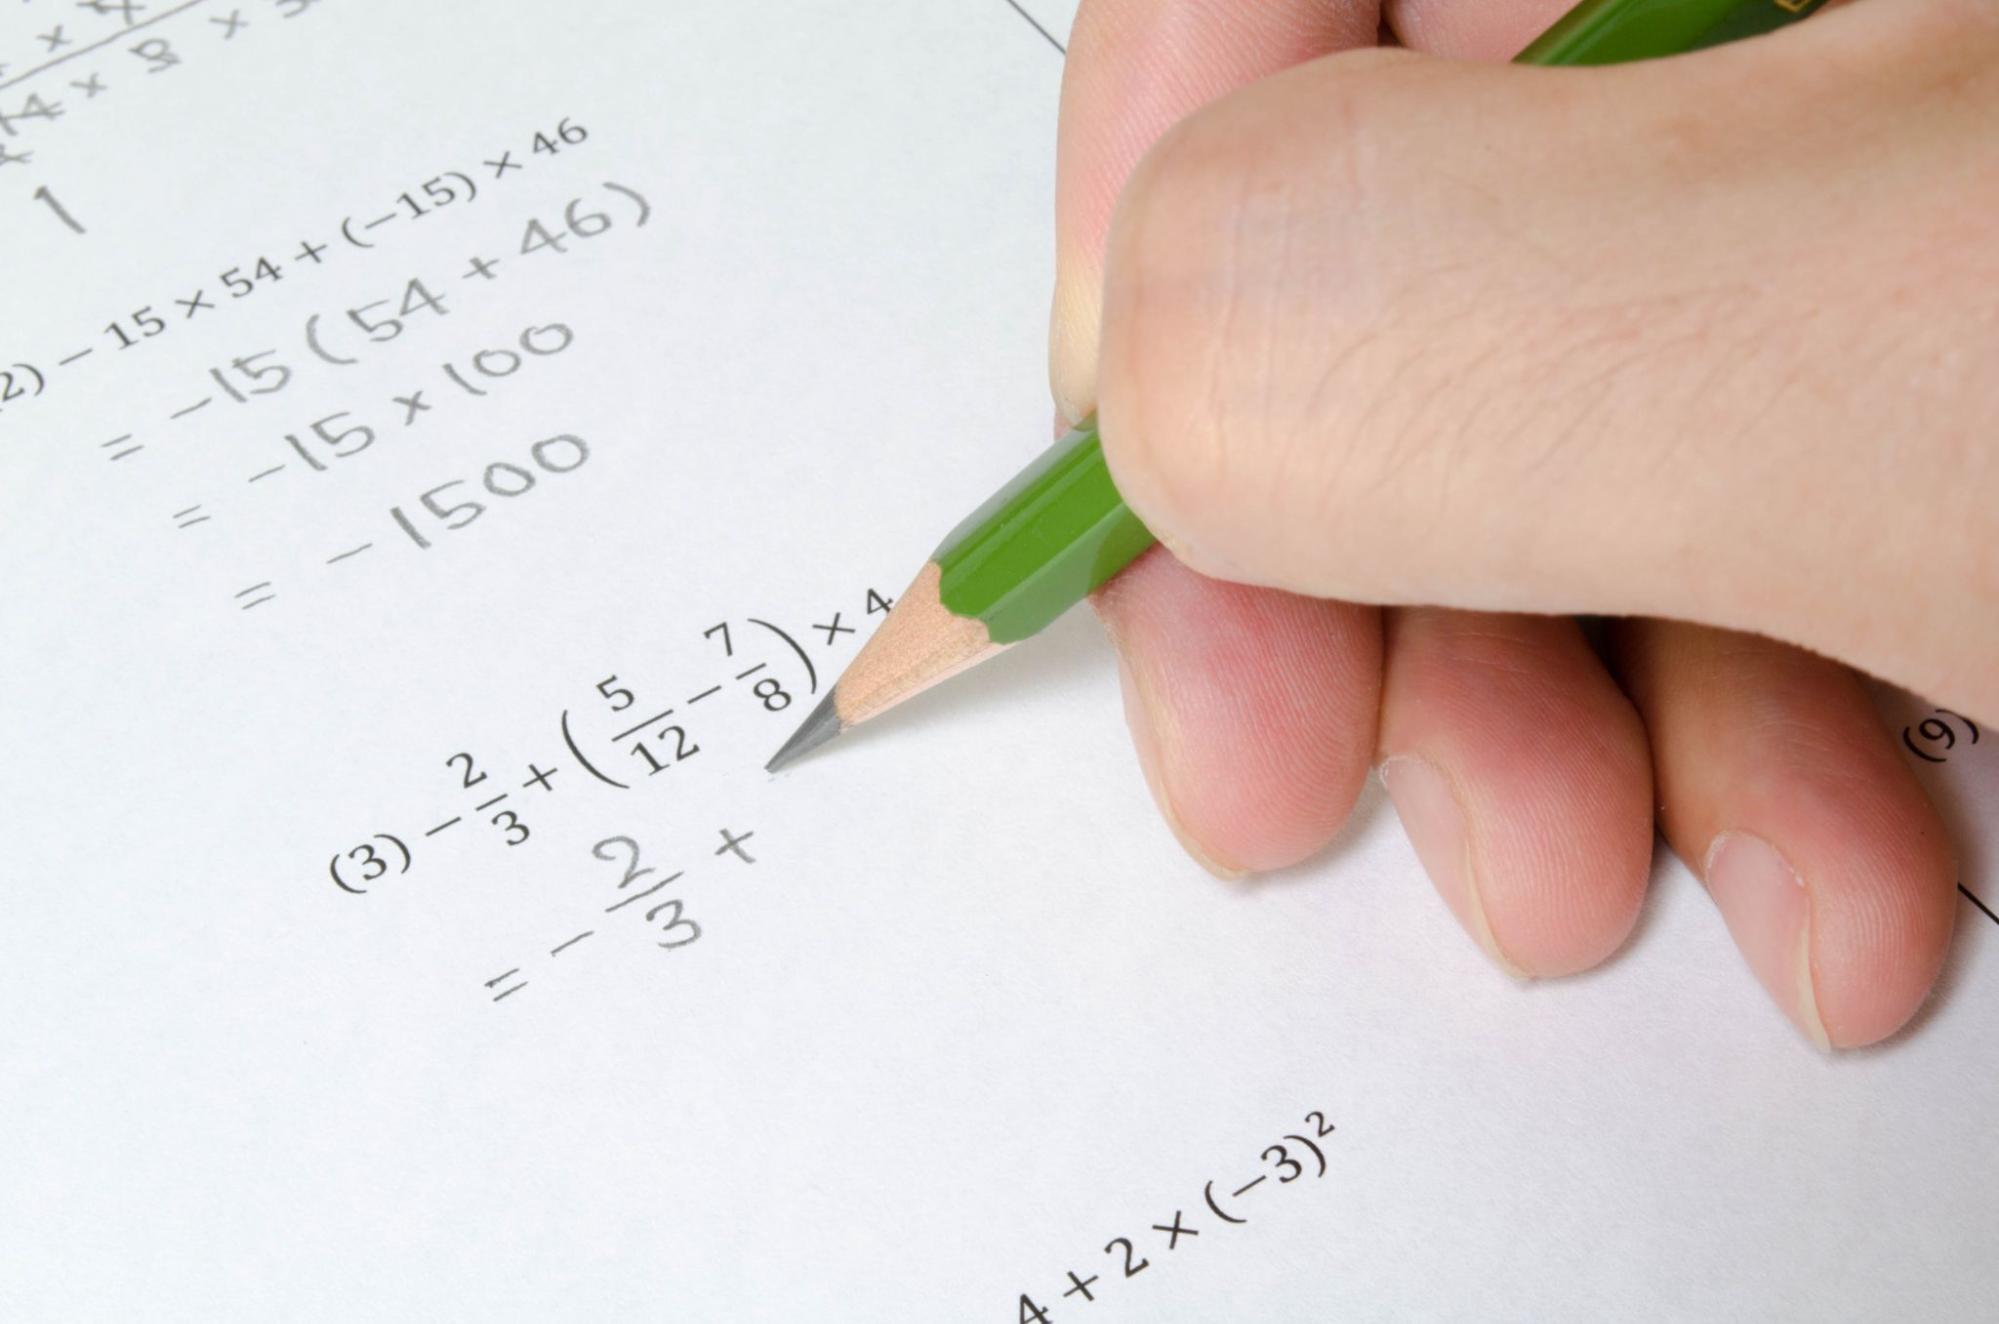 1
2) − 15 × 54 + (−15) × 46
= −15 ( 54 + 46 )
= −15 × 100
= − 1500
(3) − 2/3 + ( 5/12 − 7/8 ) × 4
= − 2/3 +
4 + 2 × (−3)²
(9)